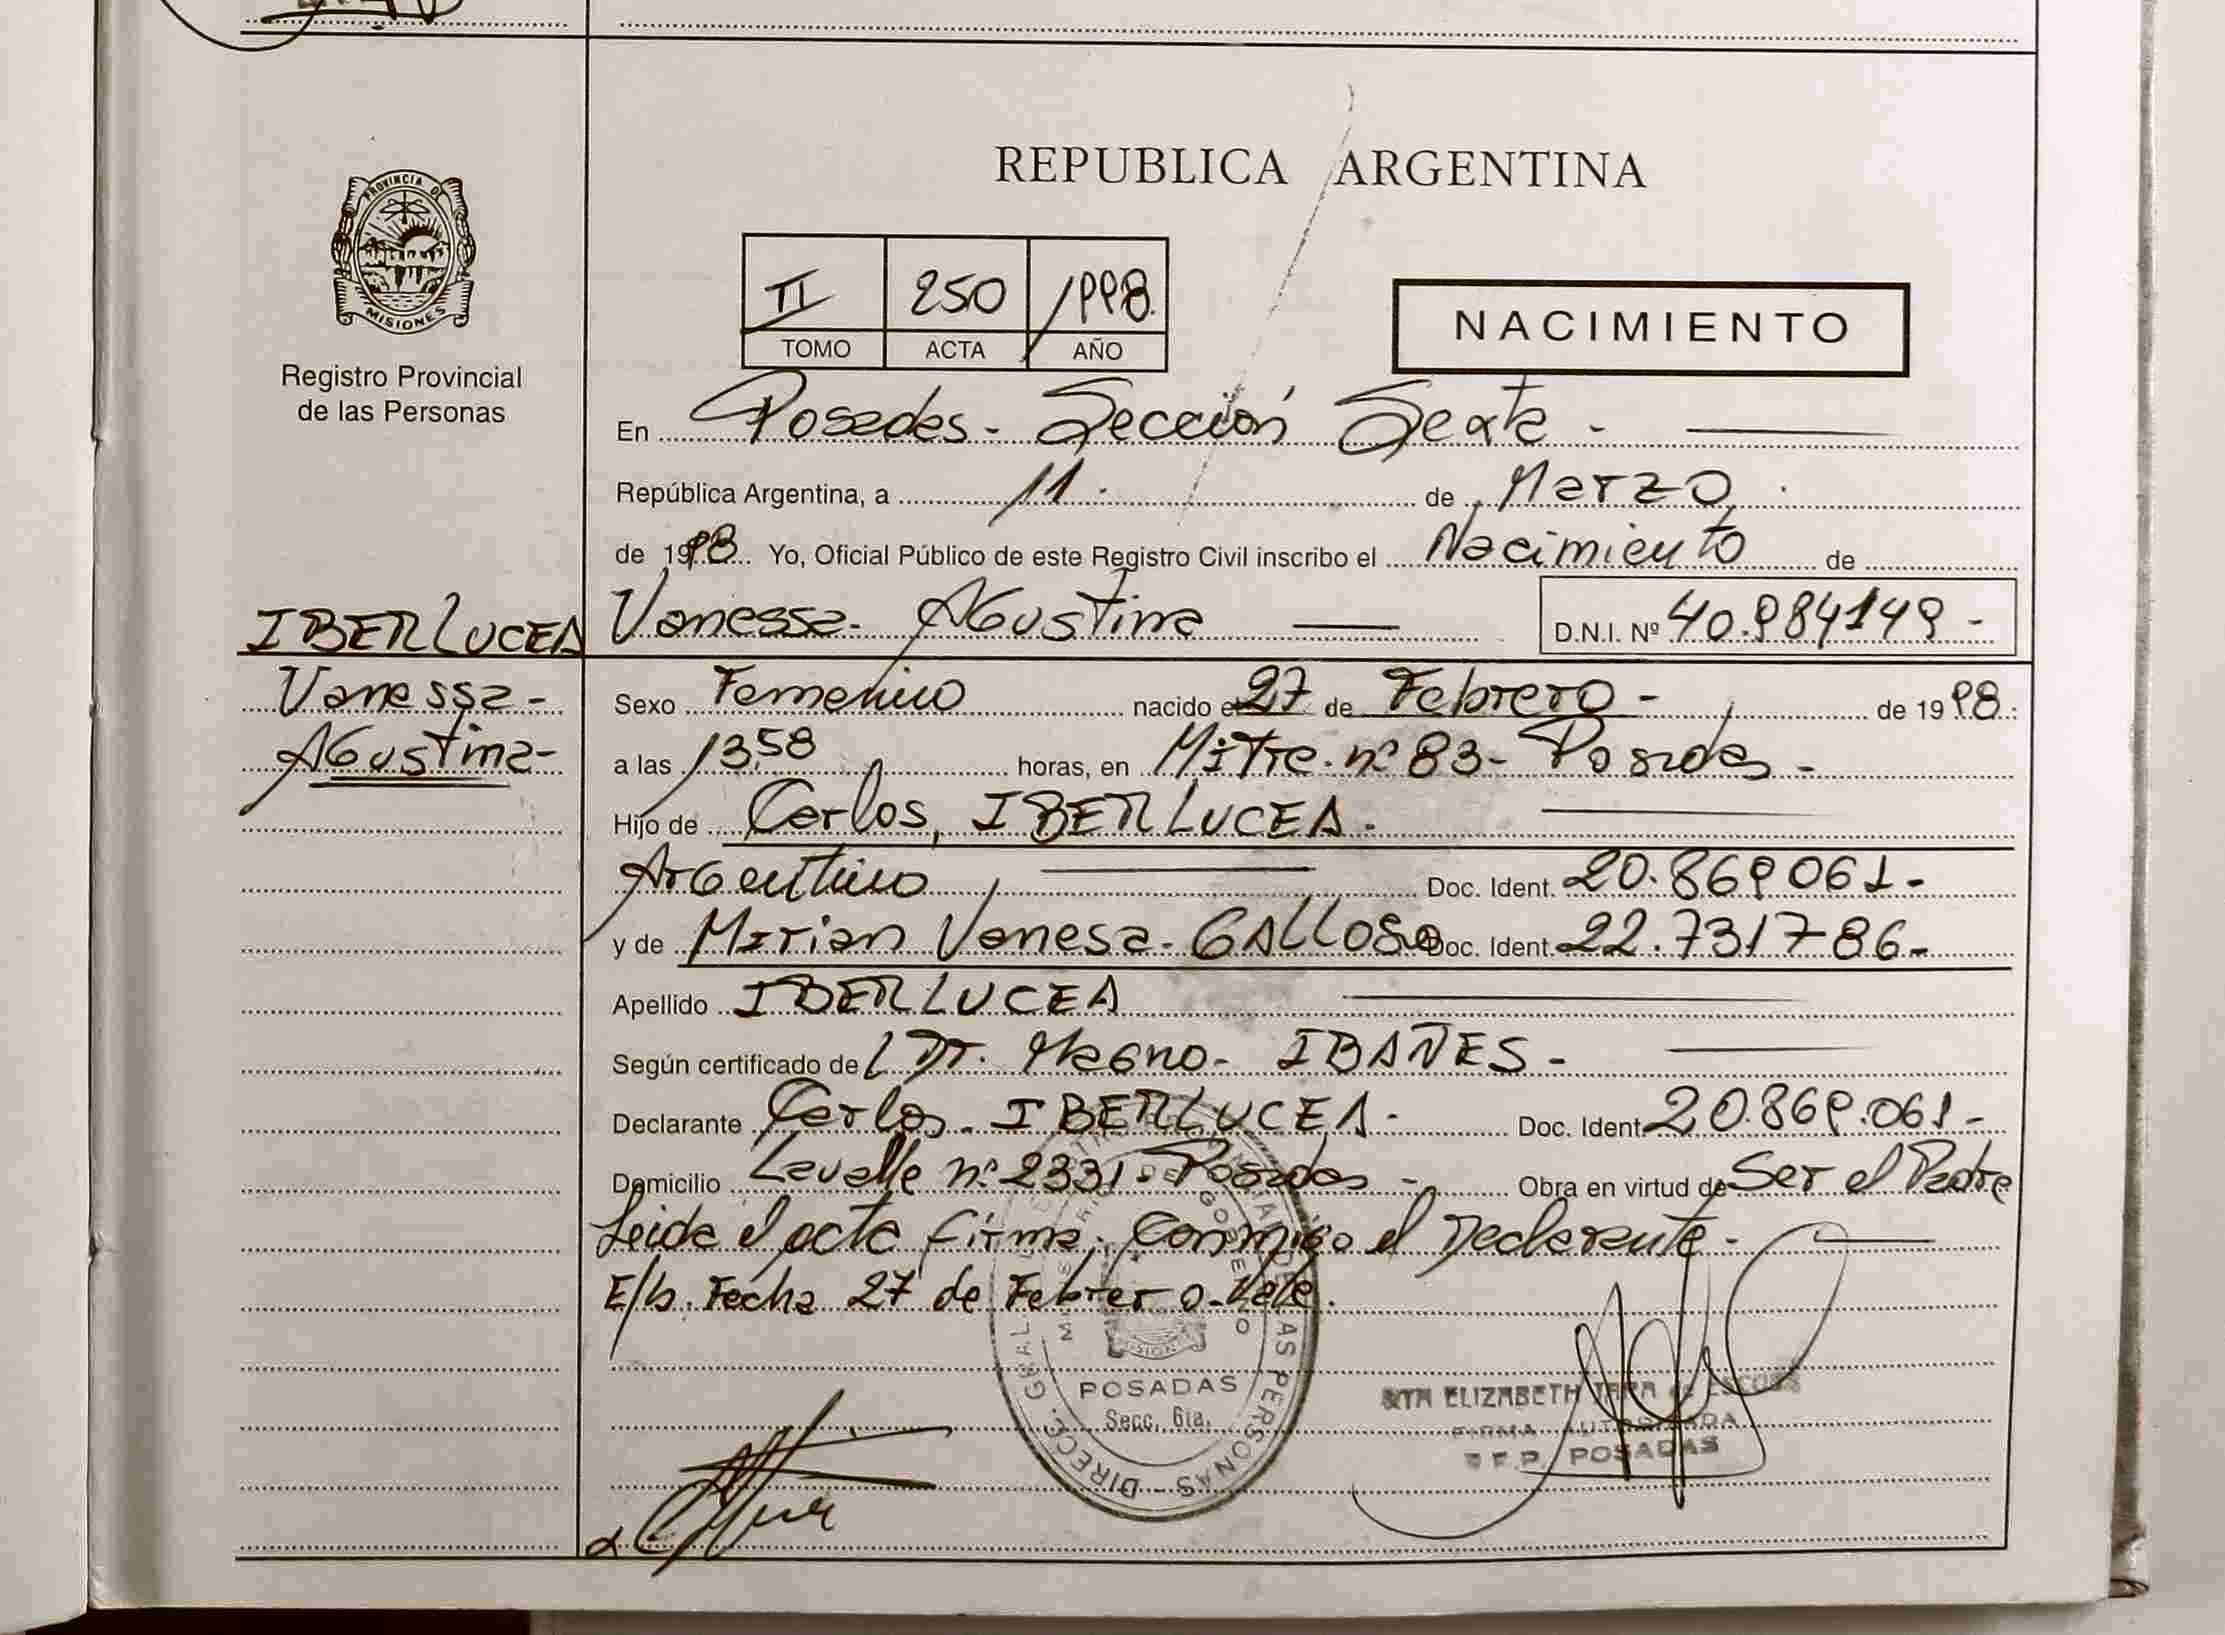 PROVINCIA DE
MISIONES
Registro Provincial
de las Personas
IBERLUCEA
Vanessa-
Agustina-
REPUBLICA ARGENTINA
II 250 1998.
TOMO ACTA AÑO
NACIMIENTO
En Posadas - Sección Sexta -
República Argentina, a 11. de Marzo.
de 1998 Yo, Oficial Público de este Registro Civil inscribo el Nacimiento de
Vanessa- Agustina D.N.I. Nº 40.984149 -
Sexo Femenino nacido el 27 de Febrero - de 1998.
a las 13,58 horas, en Mitre. nº 83- Posadas -
Hijo de Carlos, IBERLUCEA.
Argentino, Doc. Ident. 20.869061-
y de Mirian Vanesa- GALLOSO Doc. Ident. 22.731786-
Apellido IBERLUCEA
Según certificado del Dr. Magno- IBAÑES -
Declarante Carlos. IBERLUCEA- Doc. Ident. 20.869.061-
Domicilio Lavalle nº 2331- Posadas - Obra en virtud de Ser el Padre
Leida el acta firma, Conmigo el Declarante-
E/l. Fecha 27 de Febrero-Vale.
DIRECC. GRAL. DE LAS PERSONAS
POSADAS
Secc. 6ta.
ELIZABETH
FIRMA AUTORIZADA
POSADAS